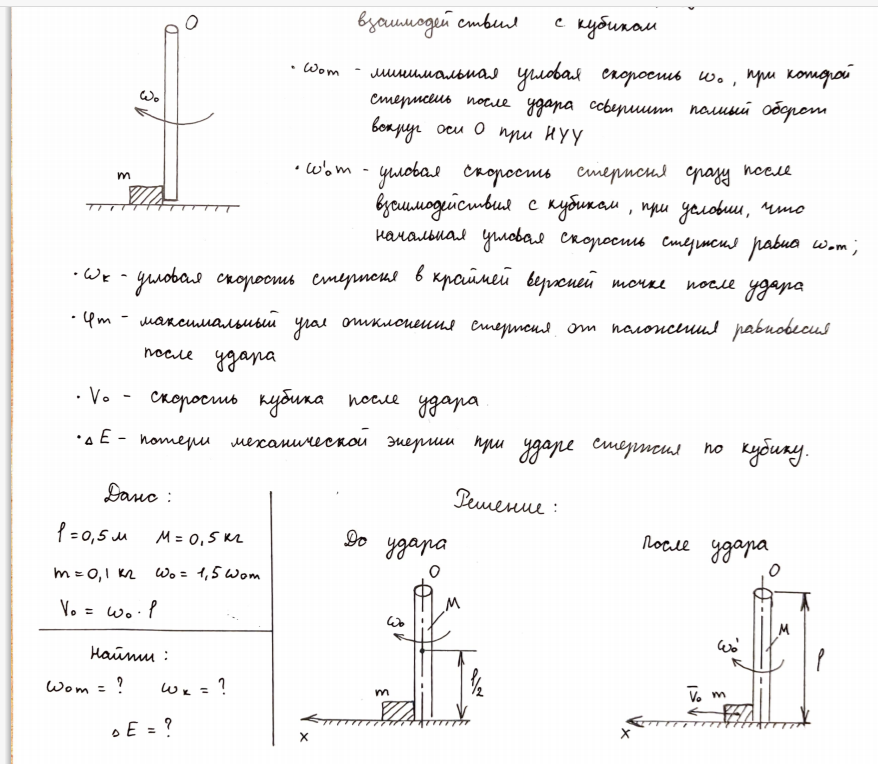 O
взаимодействия с кубиком
· ω₀m – минимальная угловая скорость ω₀, при которой
стержень после удара совершит полный оборот
вокруг оси O при НУУ
ω₀
m
· ω'₀m – угловая скорость стержня сразу после
взаимодействия с кубиком, при условии, что
начальная угловая скорость стержня равна ω₀m;
· ωк – угловая скорость стержня в крайней верхней точке после удара
· φm – максимальный угол отклонения стержня от положения равновесия
после удара
· V₀ – скорость кубика после удара
· ΔE – потери механической энергии при ударе стержня по кубику.
Дано:
l = 0,5 м M = 0,5 кг
m = 0,1 кг ω₀ = 1,5 ω₀m
V₀ = ω₀ · l
Найти:
ω₀m = ? ωк = ?
ΔE = ?
Решение:
До удара
O
M
ω₀
m
l/2
x
После удара
O
M
ω₀'
l
V̄₀ m
x